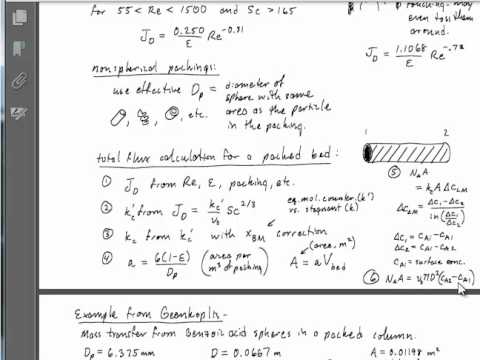 for 55 < Re < 1500 and Sc > 165
J_D = 0.250/ε Re^-0.31
touching. may
even toss them
around.
J_D = 1.1068/ε Re^-.72
nonspherical packings:
use effective Dp = diameter of
sphere with same
area as the particle
in the packing.
, etc.
total flux calculation for a packed bed:
① J_D from Re, ε, packing, etc.
② kc' from J_D = kc'/v₀ Sc^2/3
eq. mol. counter. (k')
vs. stagnant (k)
③ kc from kc' with x_BM correction
④ a = 6(1-ε)/Dp (area per m³ of packing) A = a V_bed
(area. m²)
1 2
⑤ N_A A
= kc A ΔC_LM
ΔC_LM = ΔC₁-ΔC₂/ln(ΔC₁/ΔC₂)
ΔC₁ = C_Ai - C_A1
ΔC₂ = C_Ai - C_A2
C_Ai = surface conc.
⑥ N_A A = (C_A2 - C_A1)
Example from Geankoplis
Mass transfer from benzoic acid spheres in a packed column.
Dp = 6.375 mm D = 0.0667 m A = 0.01198 m²